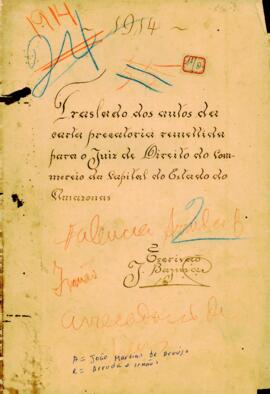 1914
1914
24
Traslado dos autos da
carta precatoria remettida
para o Juiz de Direito do Com-
mercio da Capital do Estado do
Amazonas
2
Escrivão
J.
Irmãos
de
A = João Martins de Araujo
R = Arruda e irmãos